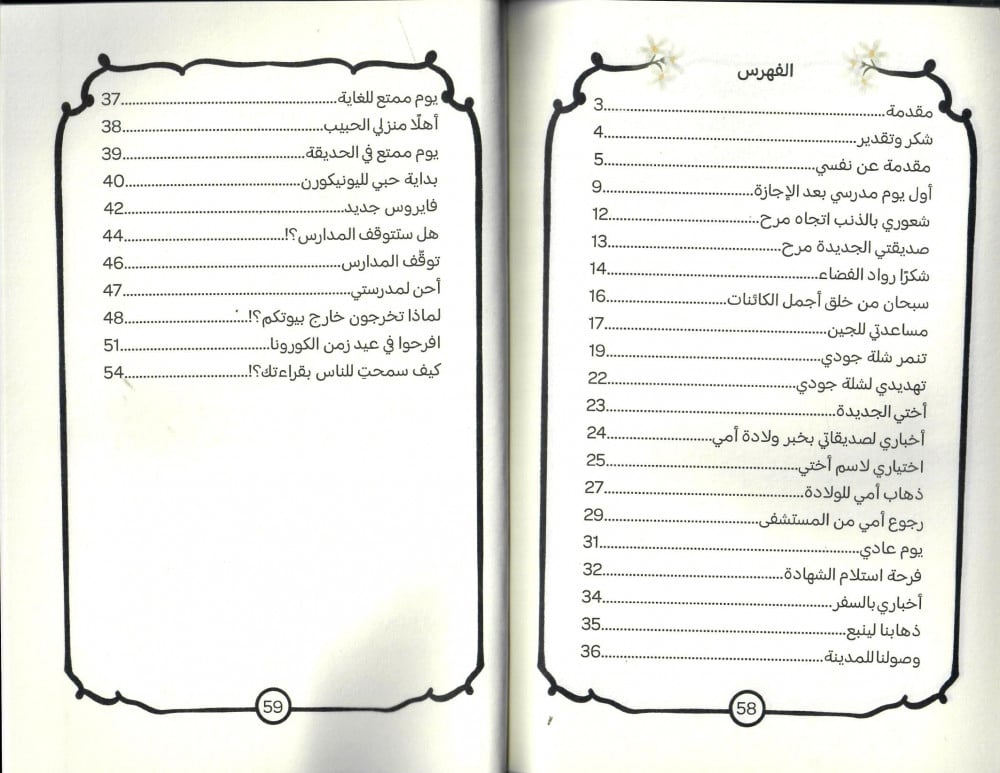 الفهرس
مقدمة......................................................................3
شكر وتقدير..............................................................4
مقدمة عن نفسي.....................................................5
أول يوم مدرسي بعد الإجازة.....................................9
شعوري بالذنب اتجاه مرح.....................................12
صديقتي الجديدة مرح..........................................13
شكرًا رواد الفضاء...................................................14
سبحان من خلق أجمل الكائنات............................16
مساعدتي للجين.....................................................17
تنمر شلة جودي......................................................19
تهديدي لشلة جودي...............................................22
أختي الجديدة.........................................................23
أخباري لصديقاتي بخبر ولادة أمي..........................24
اختياري لاسم أختي................................................25
ذهاب أمي للولادة..................................................27
رجوع أمي من المستشفى.......................................29
يوم عادي................................................................31
فرحة استلام الشهادة.............................................32
أخباري بالسفر.........................................................34
ذهابنا لينبع.............................................................35
وصولنا للمدينة........................................................36
58
يوم ممتع للغاية......................................................37
أهلًا منزلي الحبيب..................................................38
يوم ممتع في الحديقة.............................................39
بداية حبي لليونيكورن............................................40
فايروس جديد........................................................42
هل ستتوقف المدارس؟!.........................................44
توقّف المدارس.......................................................46
أحن لمدرستي.........................................................47
لماذا تخرجون خارج بيوتكم؟!...............................48
افرحوا في عيد زمن الكورونا...................................51
كيف سمحتِ للناس بقراءتك؟!...............................54
59